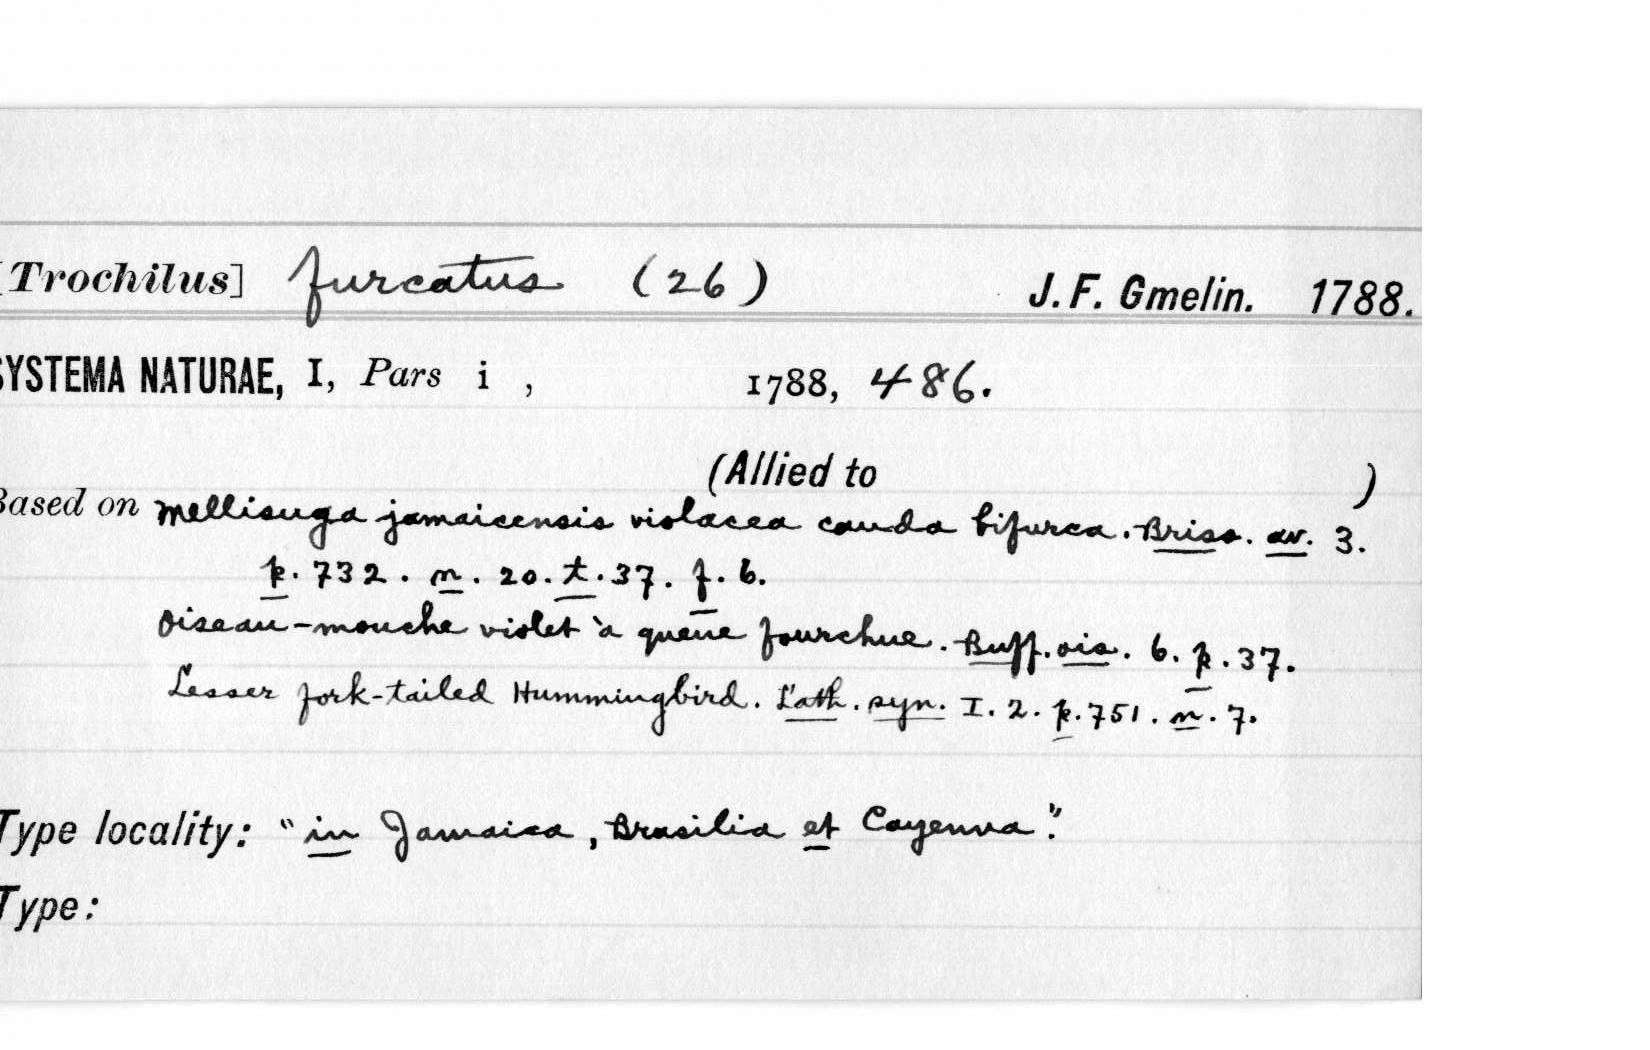 [Trochilus] furcatus (26) J. F. Gmelin. 1788.
SYSTEMA NATURAE, I, Pars i , 1788, 486.
(Allied to )
Based on Mellisuga jamaicensis violacea cauda bifurca. Briss. av. 3.
p. 732. n. 20. t. 37. f. 6.
Oiseau-mouche violet à queue fourchue. Buff. ois. 6. p. 37.
Lesser fork-tailed Hummingbird. Lath. syn. I. 2. p. 751. n. 7.
Type locality: "in Jamaica, Brasilia et Cayenna".
Type: